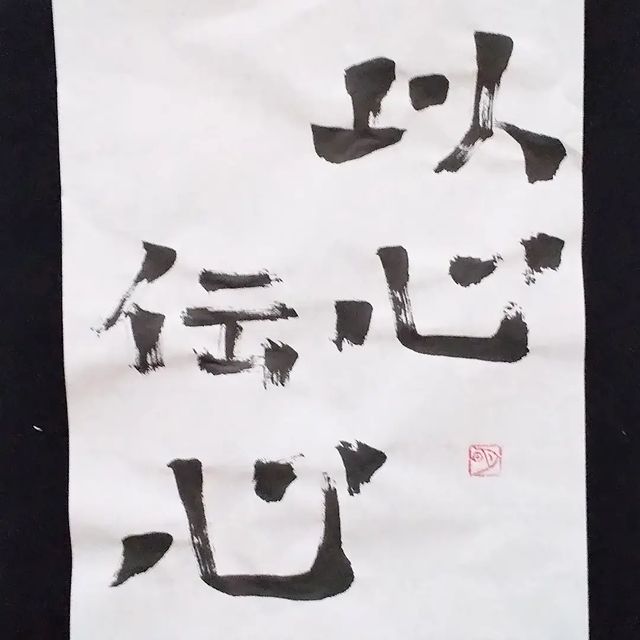 以
心
伝
心